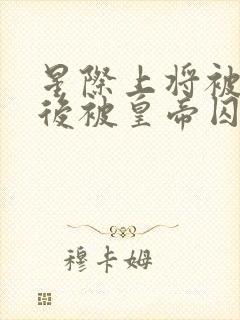 星際上將被
後被皇帝囚
穆卡姆